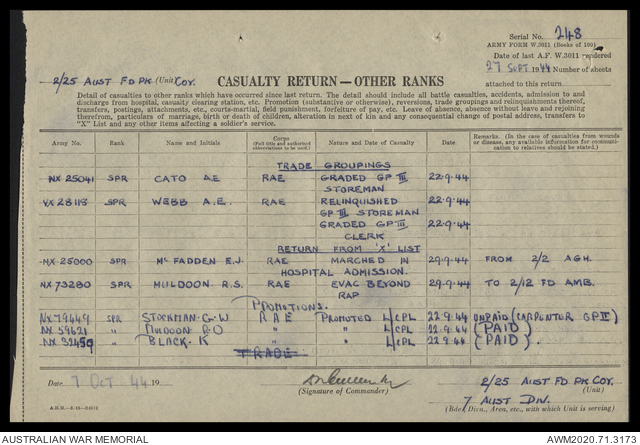 Serial No. 248
ARMY FORM W.3011 (Books of 100)
Date of last A.F. W.3011 rendered
27 SEPT 1944 Number of sheets
attached to this return
2/25 AUST FD PK (Unit) COY.
CASUALTY RETURN—OTHER RANKS
Detail of casualties to other ranks which have occurred since last return. The detail should include all battle casualties, accidents, admission to and
discharge from hospital, casualty clearing station, etc. Promotion (substantive or otherwise), reversions, trade groupings and relinquishments thereof,
transfers, postings, attachments, etc., courts-martial, field punishment, forfeiture of pay, etc. Leave of absence, absence without leave and rejoining
therefrom, particulars of marriage, birth or death of children, alteration in next of kin and any consequential change of postal address, transfers to
"X" List and any other items affecting a soldier's service.
Army No. Rank Name and Initials Corps (Full title and authorised abbreviations to be used.) Nature and Date of Casualty Date Remarks. (In the case of casualties from wounds or disease, any available information for communication to relatives should be stated.)
TRADE GROUPINGS
NX 25041 SPR CATO A E RAE GRADED GP III 22.9.44
STOREMAN
VX 28118 SPR WEBB A.E. RAE RELINQUISHED 22.9.44
GP III STOREMAN
GRADED GP III 22.9.44
CLERK
RETURN FROM 'X' LIST
NX 25000 SPR McFADDEN E.J. RAE MARCHED IN 29.9.44 FROM 2/2 AGH.
HOSPITAL ADMISSION.
NX 73280 SPR MULDOON R.S. RAE EVAC BEYOND 29.9.44 TO 2/12 FD AMB.
RAP
PROMOTIONS.
NX79449 SPR STOCKMAN. G. W RAE PROMOTED L/CPL 22.9.44 UNPAID (CARPENTER GP II)
NX 59621 " " " L/CPL 22.9.44 (PAID)
NX 32459 " BLACK. K " " L/CPL 22.9.44 (PAID).
TRADE
Date 7 OCT 44 19
(Signature of Commander)
2/25 AUST FD PK COY.
(Unit)
7 AUST DIV.
(Bde., Divn., Area, etc., with which Unit is serving)
AUSTRALIAN WAR MEMORIAL
AWM2020.71.3173